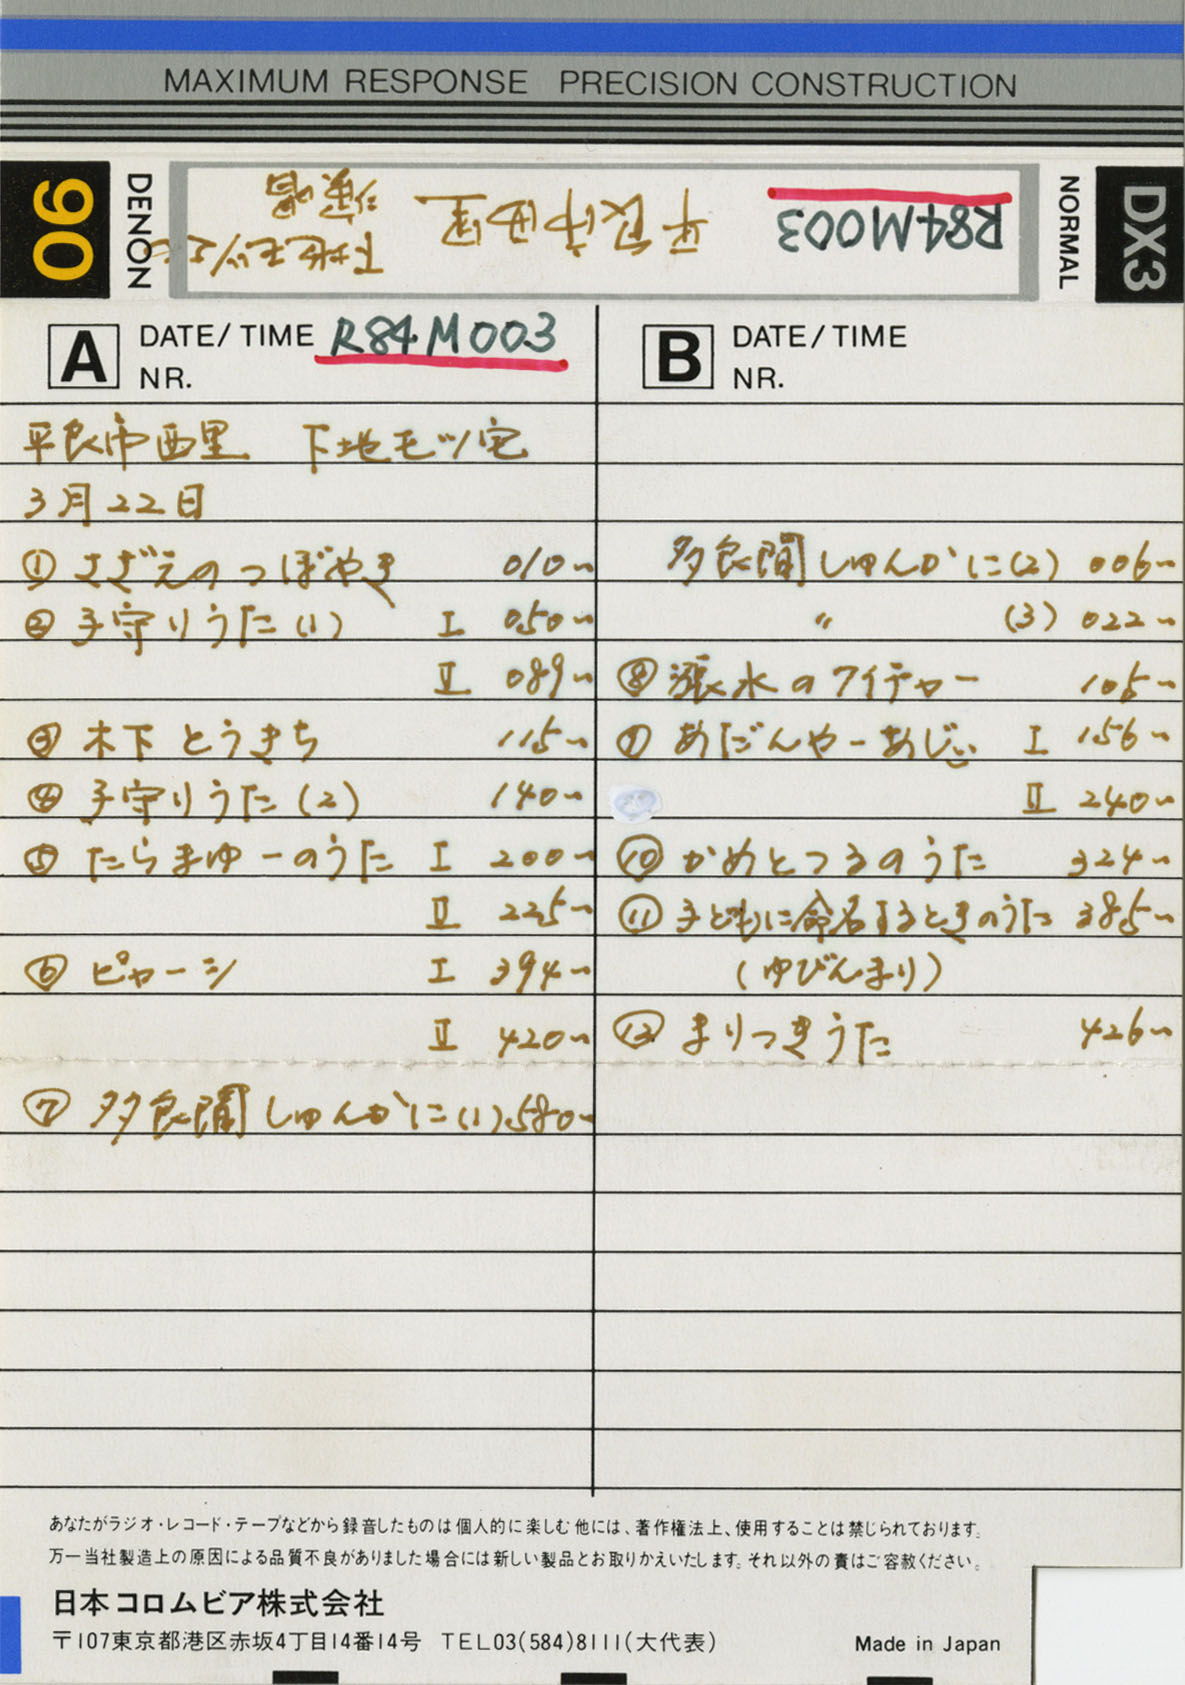 MAXIMUM RESPONSE PRECISION CONSTRUCTION
90
DENON
R84M003
平良市西里
下地モツ
NORMAL
DX3
A DATE/TIME R84M003
NR.
平良市西里 下地モツ宅
3月22日
① さざえのつぼやき 010〜
② 子守りうた(1) I 050〜
II 089〜
③ 木下とうきち 115〜
④ 子守りうた(2) 140〜
⑤ たらまゆーのうた I 200〜
II 225〜
⑥ ピャーシ I 394〜
II 420〜
⑦ 多良間しゅんかに(1) 580〜
B DATE/TIME
NR.
多良間しゅんかに(2) 006〜
〃 (3) 022〜
⑧ 漲水のクイチャー 105〜
⑨ あだんやーあじぃ I 156〜
II 240〜
⑩ かめとつるのうた 324〜
⑪ 子どもに命名するときのうた 385〜
(ゆびんまり)
⑫ まりつきうた 426〜
あなたがラジオ・レコード・テープなどから録音したものは個人的に楽しむ他には、著作権法上、使用することは禁じられております。
万一当社製造上の原因による品質不良がありました場合には新しい製品とお取りかえいたします。それ以外の責はご容赦ください。
日本コロムビア株式会社
〒107東京都港区赤坂4丁目14番14号 TEL03(584)8111(大代表)
Made in Japan